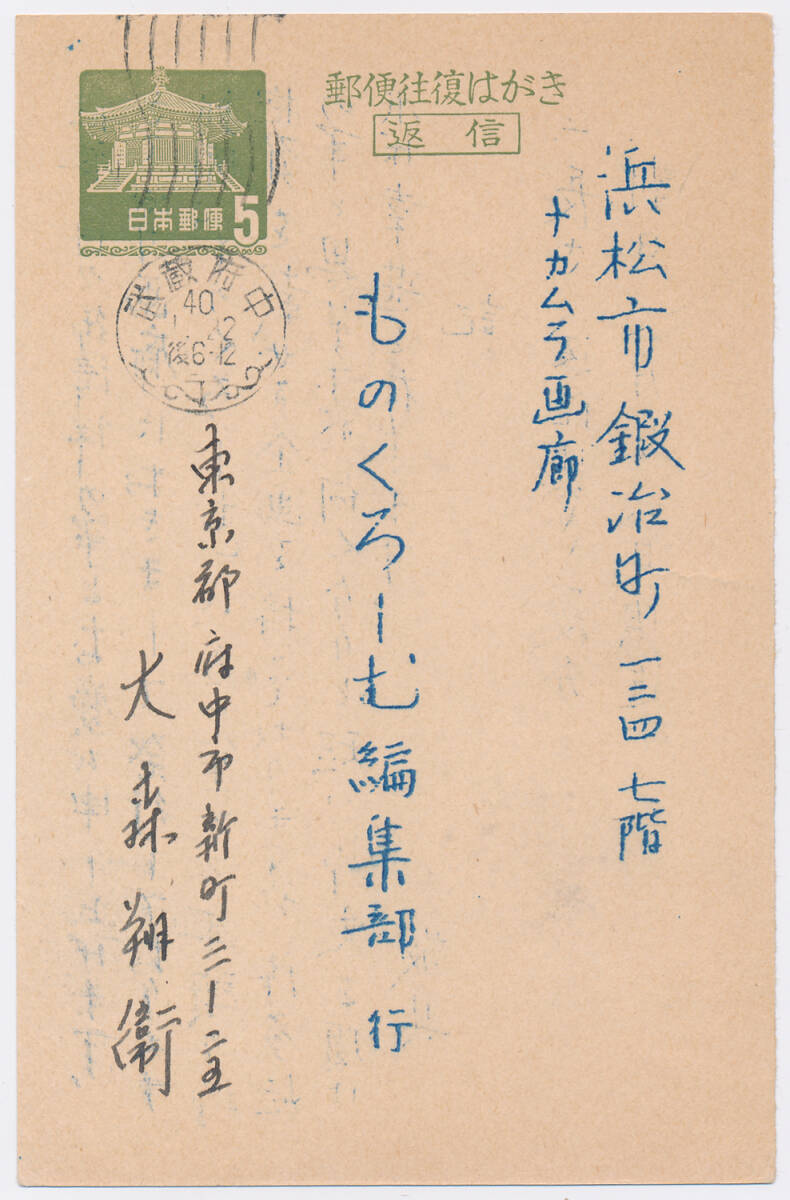 郵便往復はがき
返信
日本郵便 5
武蔵府中
40
後6-12
浜松市鍛冶町一三四 七階
ナカムラ画廊
ものくろーむ編集部 行
東京都府中市新町二ー二五
大森朔衛